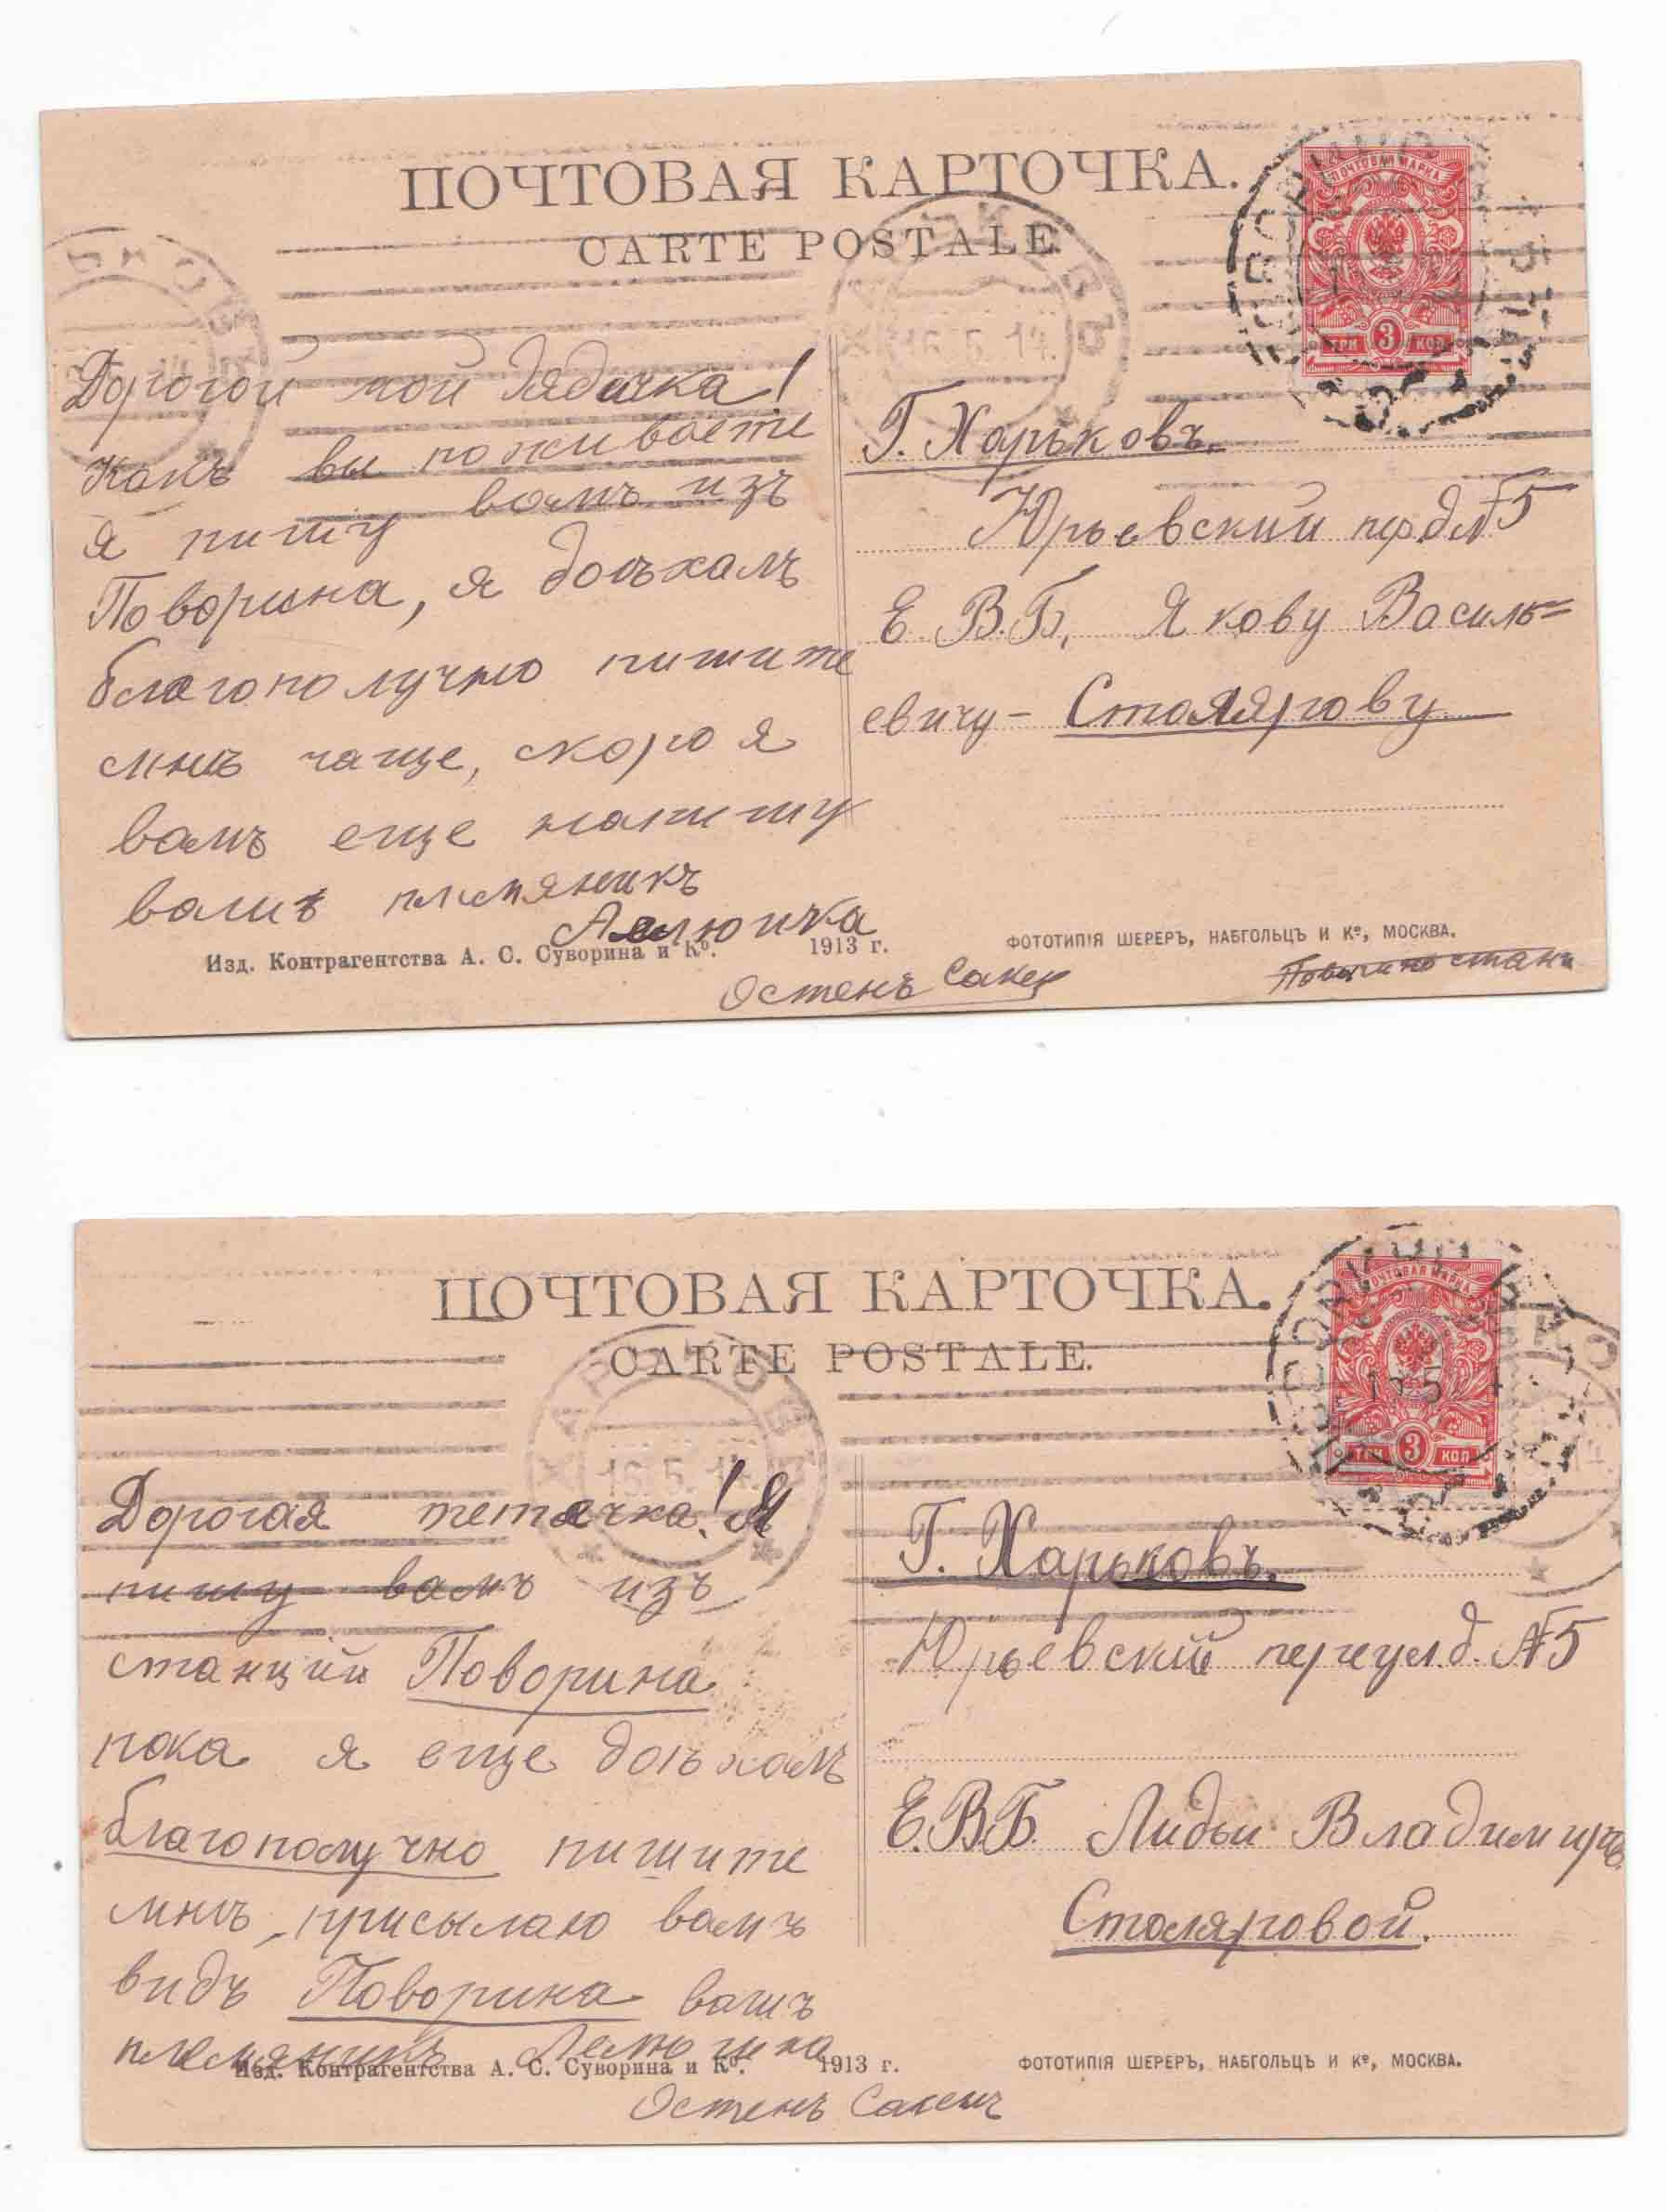 ПОЧТОВАЯ КАРТОЧКА.
CARTE POSTALE.
ХАРЬКОВЪ
16.5.14
ПОЧТОВАЯ МАРКА
ТРИ 3 КОП
Дорогой мой дядичка!
Какъ вы поживаете
я пишу вамъ изъ
Поворина, я доѣхалъ
благополучно пишите
мнѣ чаще, скоро я
вамъ еще напишу
вашъ племяникъ
Остенъ Сакен
Г. Харьковъ.
Юрьевский пер. д №5
Е. В. Б. Якову Василь=
евичу - Столярову
Изд. Контрагентства А. С. Суворина и Ко. 1913 г.
ФОТОТИПІЯ ШЕРЕРЪ, НАБГОЛЬЦЪ И Ко, МОСКВА.
ПОЧТОВАЯ КАРТОЧКА.
CARTE POSTALE.
ХАРЬКОВЪ
16.5.14
ПОЧТОВАЯ МАРКА
ТРИ 3 КОП
Дорогая тетачка! Я
пишу вамъ изъ
станций Поворина
пока я еще доѣхалъ
благополучно пишите
мнѣ, присылаю вамъ
видъ Поворина вашъ
племяникъ
Остенъ Сакенъ
Г. Харьковъ.
Юрьевский переул. д. №5
Е.В.Б. Лидьи Владимиров
Столяровой.
Изд. Контрагентства А. С. Суворина и Ко. 1913 г.
ФОТОТИПІЯ ШЕРЕРЪ, НАБГОЛЬЦЪ И Ко, МОСКВА.